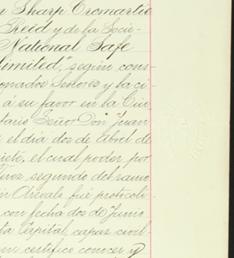 n Sharp Cromartie
Reid y de la Socie-
National Safe
Limited", según cons-
ionados Señores y la ci-
á su favor en la Ciu-
tario Señor Don Juan
e el dia dos de Abril de
siete, el cual poder por
segundo del ramo
in Arévalo fué protocoli-
con fecha dos de Junio
ta Capital, capaz civil-
en certifico conocer y